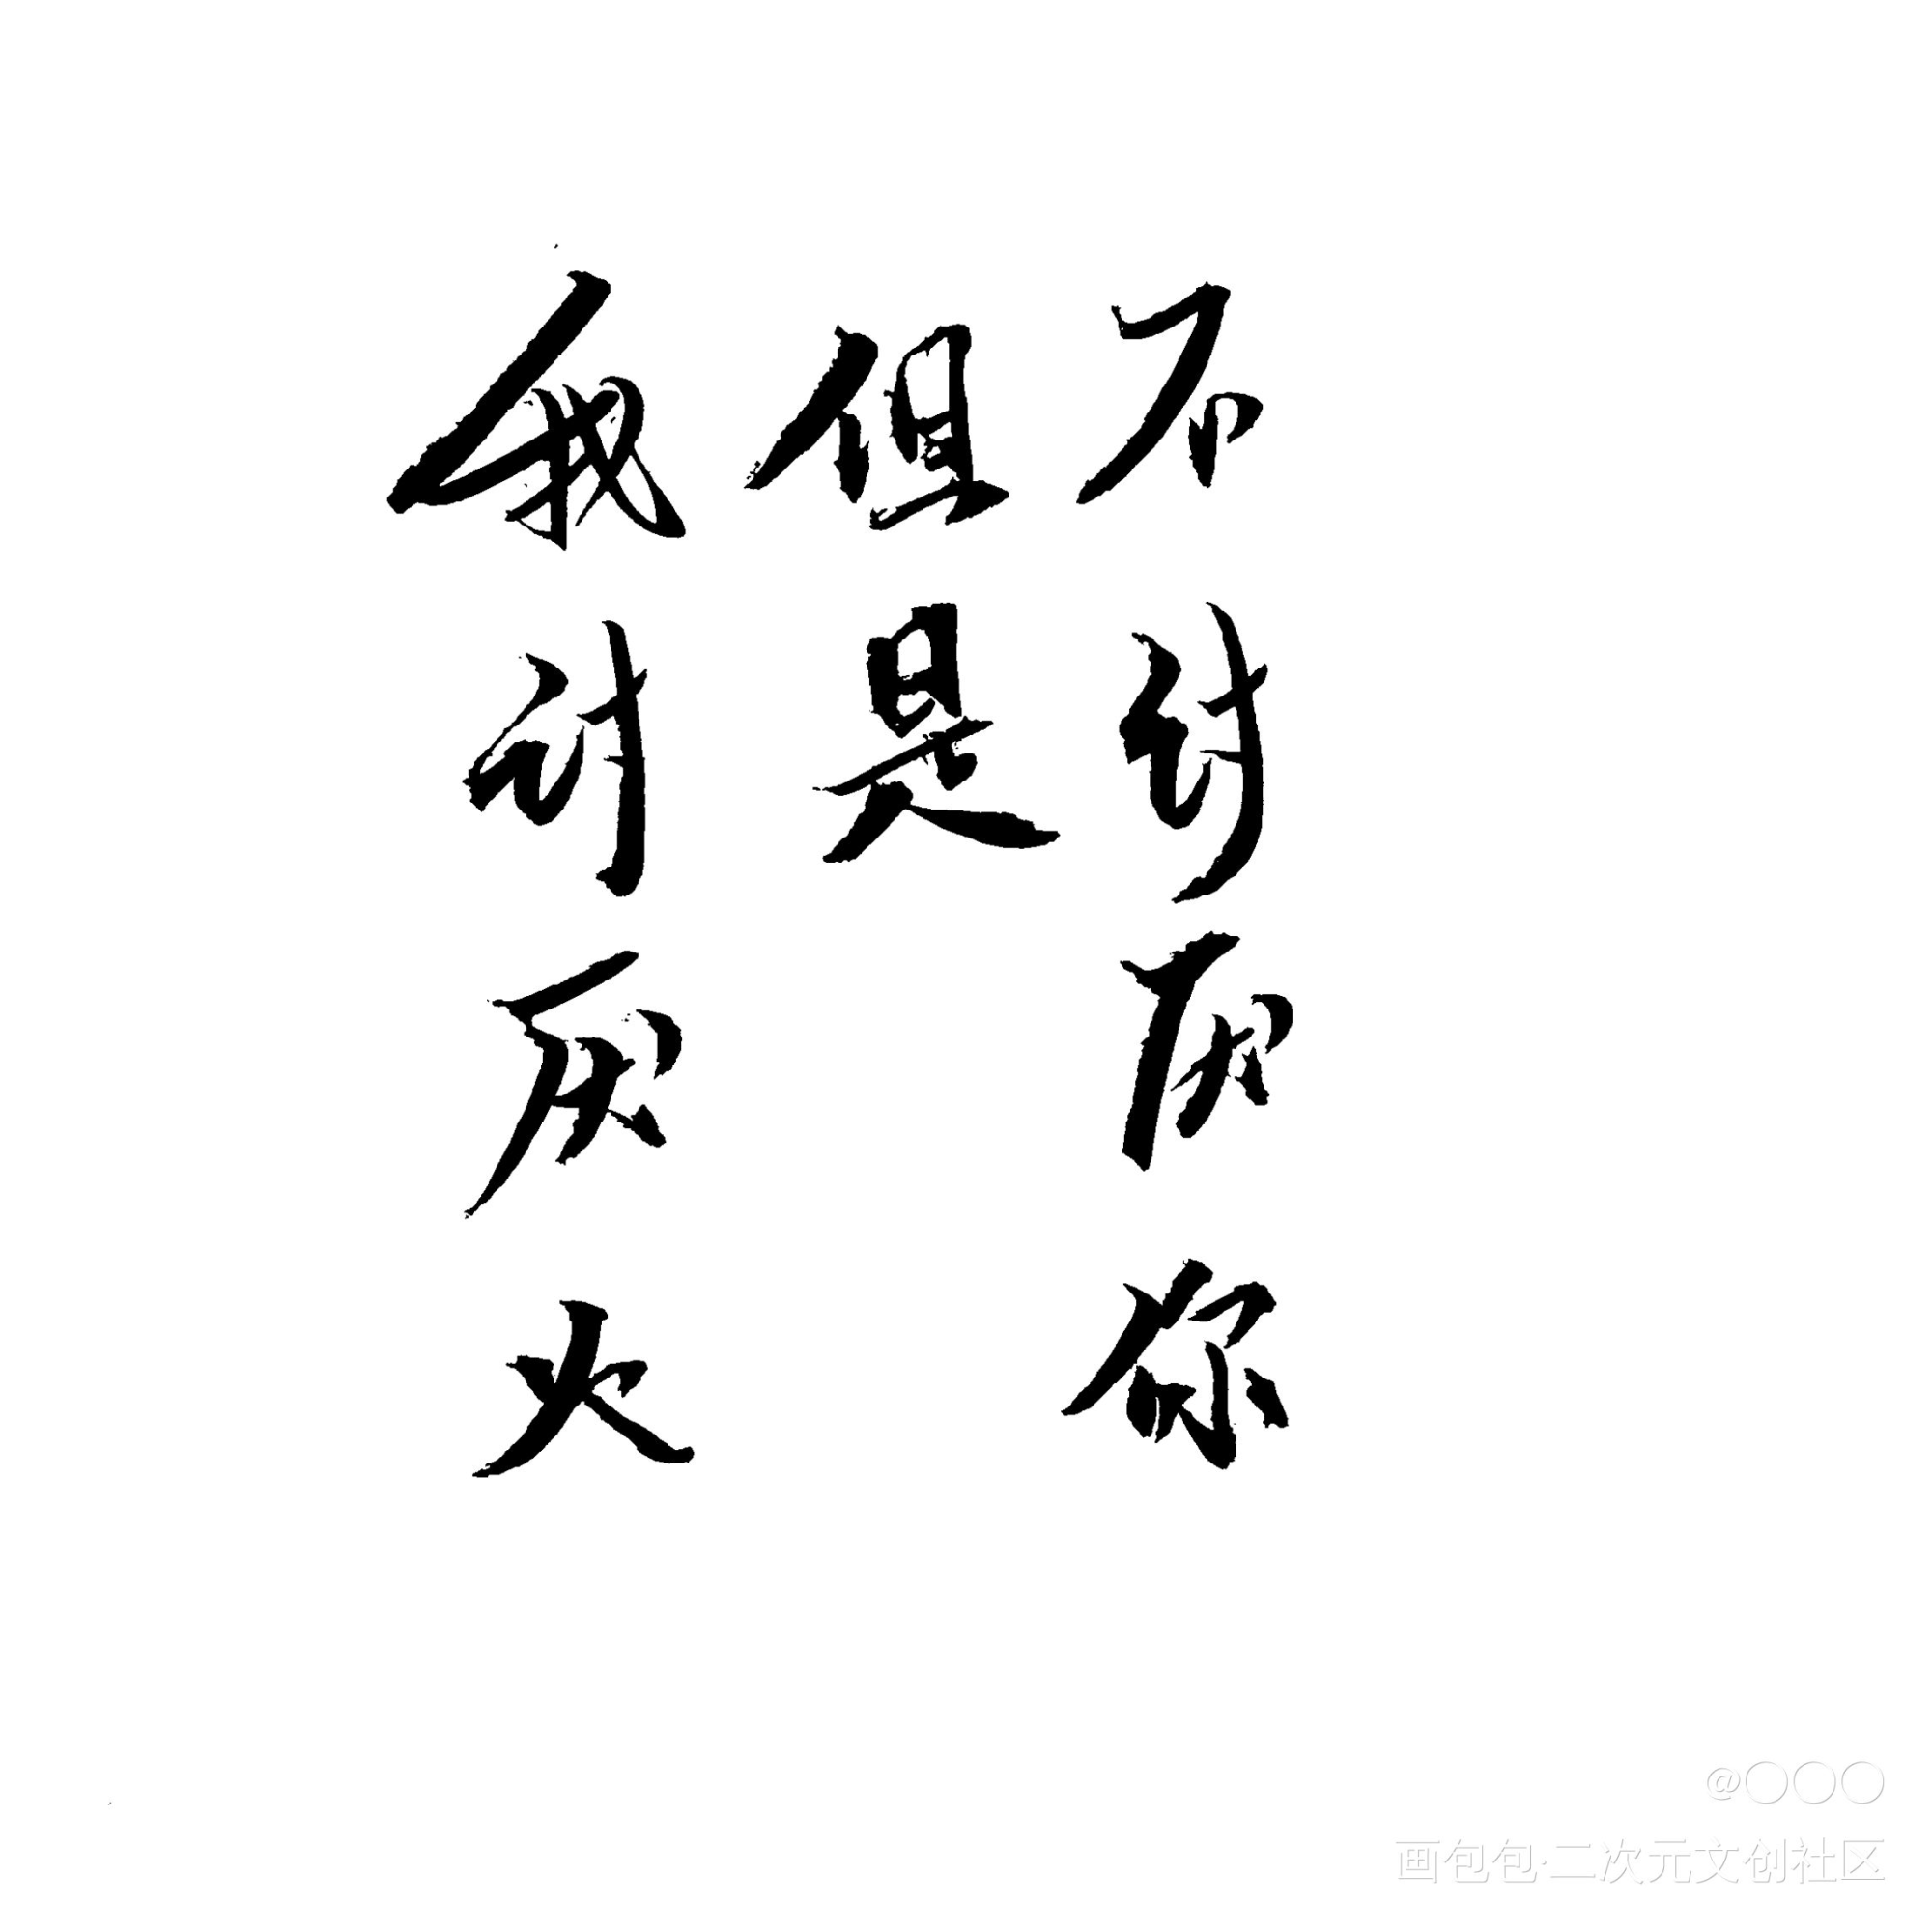 我讨厌火
但是
不讨厌你
@◯◯◯
画包包·二次元文创社区